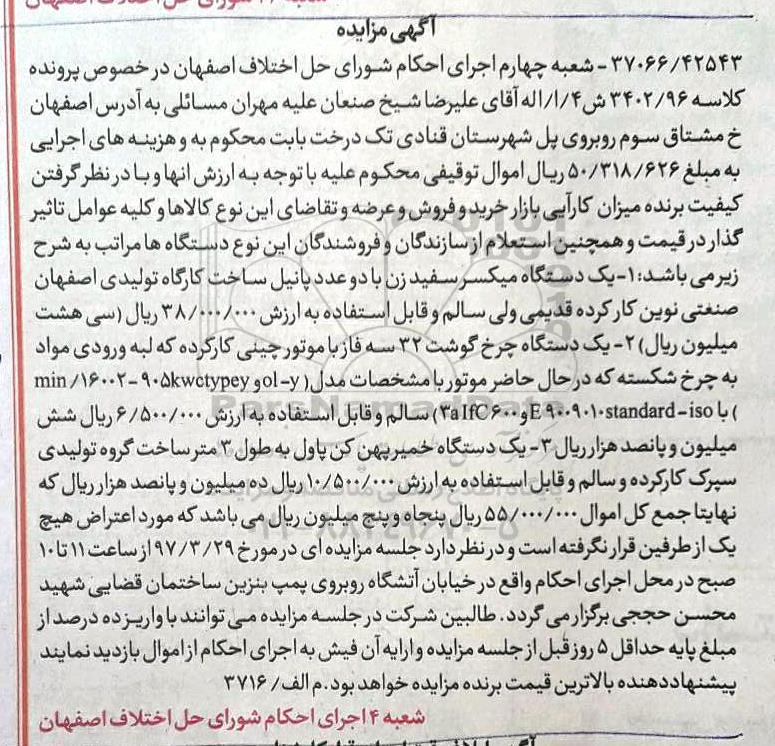 آگهی مزایده
۳۷۰۶۶/۴۲۵۴۳ - شعبه چهارم اجرای احکام شورای حل اختلاف اصفهان در خصوص پرونده
کلاسه ۳۴۰۲/۹۶ ش۴/ا/اله آقای علیرضا شیخ صنعان علیه مهران مسائلی به آدرس اصفهان
خ مشتاق سوم روبروی پل شهرستان قنادی تک درخت بابت محکوم به و هزینه های اجرایی
به مبلغ ۵۰/۳۱۸/۶۲۶ ریال اموال توقیفی محکوم علیه با توجه به ارزش انها و با در نظر گرفتن
کیفیت برنده میزان کارآیی بازار خرید و فروش و عرضه و تقاضای این نوع کالاها و کلیه عوامل تاثیر
گذار در قیمت و همچنین استعلام از سازندگان و فروشندگان این نوع دستگاه ها مراتب به شرح
زیر می باشد: ۱- یک دستگاه میکسر سفید زن با دو عدد پانیل ساخت کارگاه تولیدی اصفهان
صنعتی نوین کار کرده قدیمی ولی سالم و قابل استفاده به ارزش ۳۸/۰۰۰/۰۰۰ ریال (سی هشت
میلیون ریال) ۲- یک دستگاه چرخ گوشت ۳۲ سه فاز با موتور چینی کارکرده که لبه ورودی مواد
به چرخ شکسته که در حال حاضر موتور با مشخصات مدل( ol-y و ۹۰۵kwctypey-۱۶۰۰۲/ min
) با E ۹۰۰۹۰۱۰standard-iso و ۳a IfC ۶۰۰) سالم و قابل استفاده به ارزش ۶/۵۰۰/۰۰۰ ریال شش
میلیون و پانصد هزار ریال ۳- یک دستگاه خمیر پهن کن پاول به طول ۳ متر ساخت گروه تولیدی
سپرک کارکرده و سالم و قابل استفاده به ارزش ۱۰/۵۰۰/۰۰۰ ریال ده میلیون و پانصد هزار ریال که
نهایتا جمع کل اموال ۵۵/۰۰۰/۰۰۰ ریال پنجاه و پنج میلیون ریال می باشد که مورد اعتراض هیچ
یک از طرفین قرار نگرفته است و در نظر دارد جلسه مزایده ای در مورخ ۹۷/۳/۲۹ از ساعت ۱۱ تا ۱۰
صبح در محل اجرای احکام واقع در خیابان آتشگاه روبروی پمپ بنزین ساختمان قضایی شهید
محسن حججی برگزار می گردد. طالبین شرکت در جلسه مزایده می توانند با واریز ده درصد از
مبلغ پایه حداقل ۵ روز قبل از جلسه مزایده و ارایه آن فیش به اجرای احکام از اموال بازدید نمایند
پیشنهاد دهنده بالاترین قیمت برنده مزایده خواهد بود. م الف/ ۳۷۱۶
شعبه ۴ اجرای احکام شورای حل اختلاف اصفهان
ParsNamadData